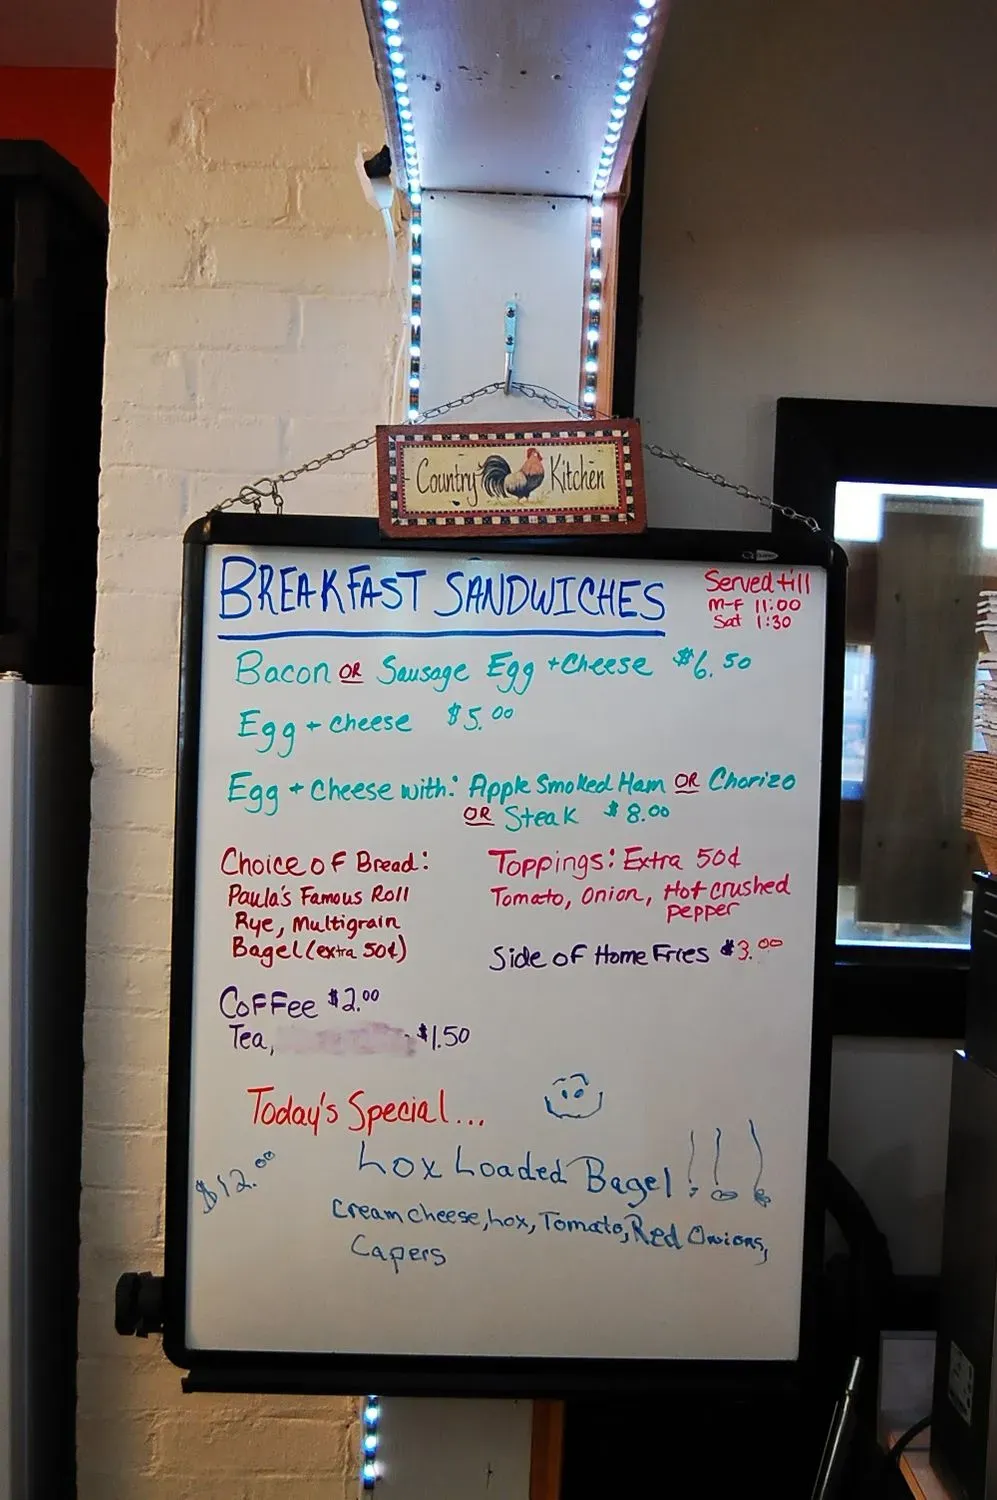 Country Kitchen
BREAKFAST SANDWICHES
Served till
M-F 11:00
Sat 1:30
Bacon OR Sausage Egg + Cheese $6.50
Egg + cheese $5.00
Egg + Cheese with: Apple Smoked Ham OR Chorizo
OR Steak $8.00
Choice of Bread:
Paula's Famous Roll
Rye, Multigrain
Bagel (extra 50¢)
Toppings: Extra 50¢
Tomato, Onion, Hot crushed
pepper
Side of Home Fries $3.00
Coffee $2.00
Tea, $1.50
Today's Special...
$12.00
Lox Loaded Bagel!!!
Cream cheese, Lox, Tomato, Red Onions,
Capers